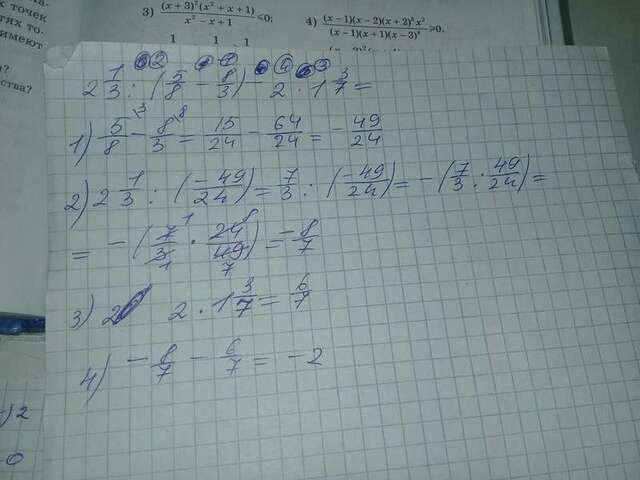 х точек
тях то.
имеют
и?
ства?
3) (x + 3)²(x² + x + 1) / (x² − x + 1) ≤0;
4) (x − 1)(x − 2)(x + 2)²x² / ((x − 1)(x + 1)(x − 3)⁴) ≥0.
1 1 1
2 1/3 : (5/8 − 8/3) − 2 · 1 3/7 =
1) 5/8 − 8/3 = 15/24 − 64/24 = − 49/24
2) 2 1/3 : (−49/24) = 7/3 : (−49/24) = −(7/3 : 49/24) =
= −(7/3 · 24/49) = −8/7
3) 2 · 1 3/7 = 6/7
4) −8/7 − 6/7 = −2
) 2
0